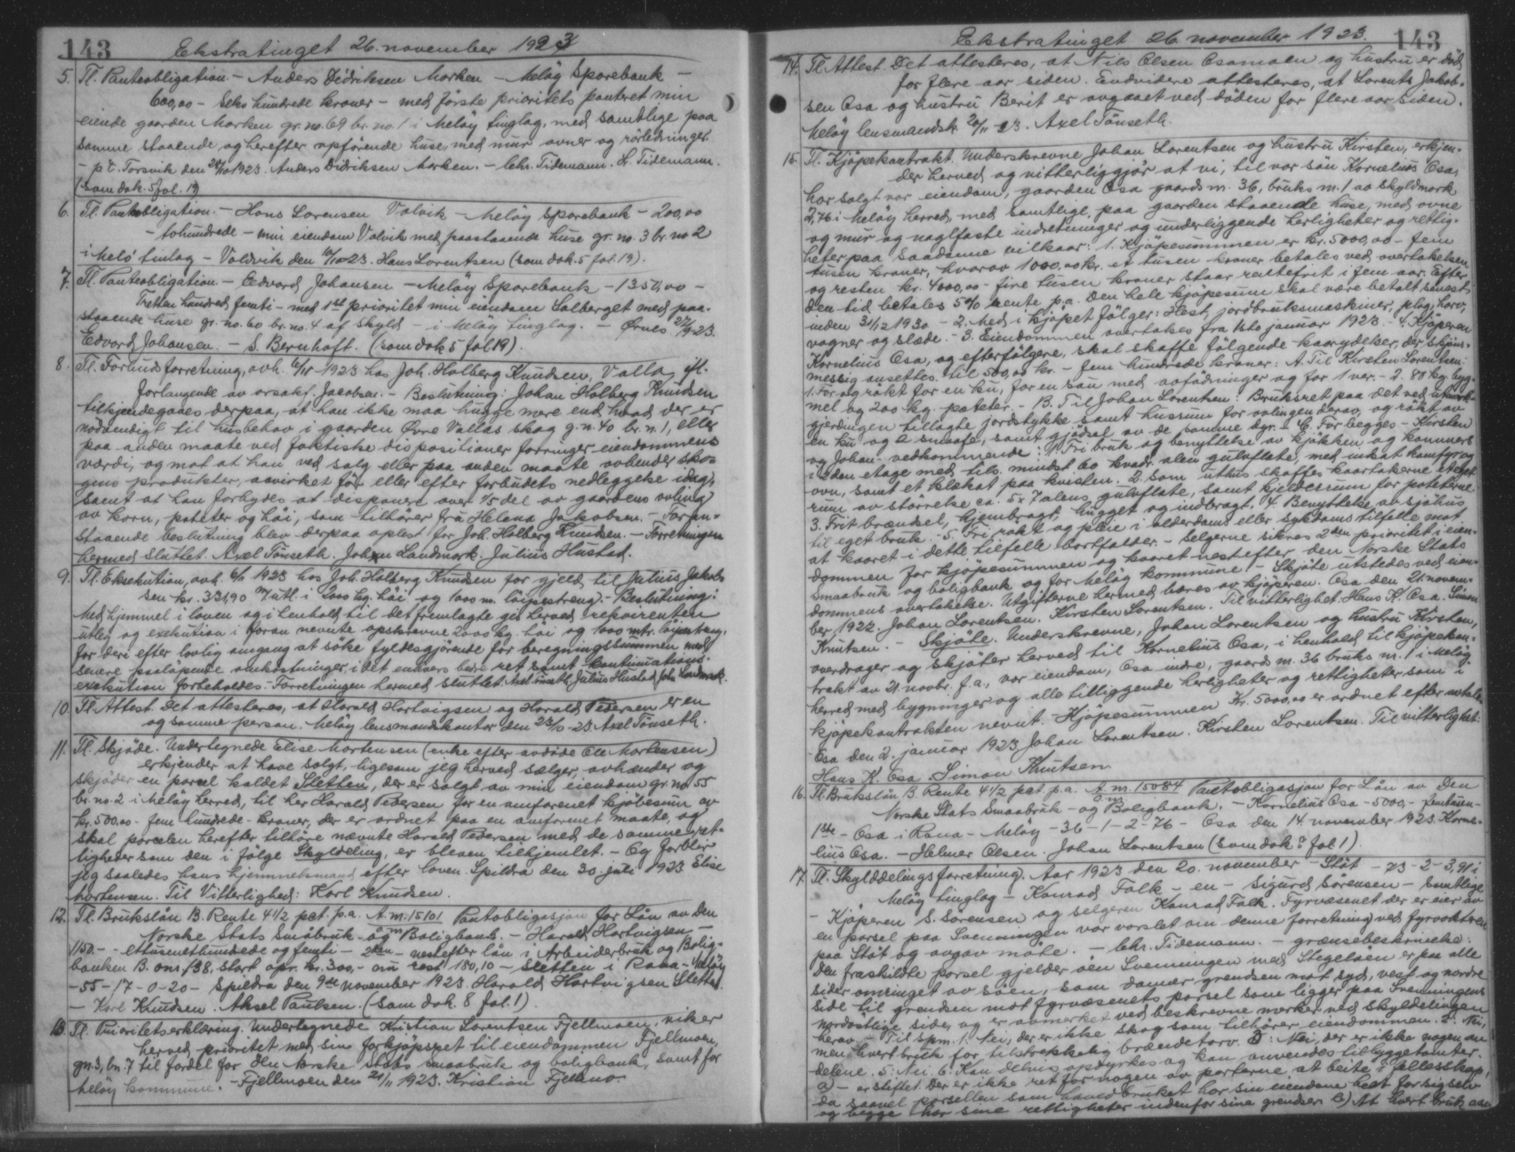 143 Ekstratinget 26. november 1923
5. Tl. Panteobligation – Anders Didriksen Marken – Meløy Sparebank –
600,00 – Seks hundrede kroner – med første prioritets panteret min
eiende gaarden Marken gr. no. 69 br. no. 1 i Meløy tinglag, med samtlige paa
samme staaende og herefter opførende huse med mur ovner og rørledninger.
– p.t. Torsvik den 20/10 1923. Anders Didriksen Marken. – Chr. Tidemann. L. Tidemann.
(som dok. 5 fol. 19)
6. Tl. Panteobligation. – Hans Lorensen Valvik – Meløy Sparebank – 200,00
– tohundrede – min eiendom Valvik med paastaaende huse gr. no. 3 br. no 2
i Melø tinlag – Valvik den 10/10 23. Hans Lorentsen (som dok. 5 fol. 19).
7. Tl. Panteobligation – Edvard Johansen – Meløy Sparebank – 1350,00 –
Tretten hundred femti – med 1ste prioritet min eiendom Solberget med paa-
staaende huse gr. no. 60 br. no. 4 af skyld – i Meløy tinglag. – Ørnes 21/9 23.
Edvard Johansen. – S. Bernhoft. (som dok 5 fol 19).
8. Tl. Forbudsforretning, avh. 6/11 – 1923 hos Joh. Holberg Knudsen, Valla, ift.
forlangende av orsakf. Jacobsen. – Beslutning: Johan Holberg Knudsen
tilkjendegaves derpaa, at han ikke maa hugge mere end hvad der er
nødvendigt til husbehov i gaarden Øvre Vallas skog g. n. 40 br. n. 1, eller
paa anden maate ved faktiske dispositioner forringer eiendommens
værdi, og mot at han ved salg eller paa anden maate avhender skog-
ens produkter, avvirket før eller efter forbudets nedleggelse idag,
samt at han forbydes at disponere over 1/5 del av gaardens avling
av korn, poteter og høi, som tilhører fru Helena Jakobsen. – Foran-
staaende beslutning blev derpaa oplest for Joh. Holberg Knudsen. – Forretningen
hermed sluttet. Axel Tønseth. Johan Landmark. Julius Hustad.
9. Tl. Eksekution, avh. 6/11 1923 hos Joh. Holberg Knudsen for gjeld til Julius Jakob-
sen kr. 331,90 utl. i 2000 kg. høi og 1000 m. løipestreng. – Beslutning:
Med hjemmel i loven og i henhold til det fremlagte gis herved repvirenten
utlæg og exekution i foran nevnte opskrevne 2000 kg. høi og 1000 mtr. løipestreng,
for deri efter lovlig omgang at søke fyldesgjørende for beregningssummen med
senere paaløpende omkostninger i det enhvers bedre ret samt kontinuations-
exekution forbeholdes. – Forretningen hermed sluttet. Axel Tønseth, Julius Hustad, Johs Landmark.
10 Tl. Attest. Det attesteres, at Harald Hartvigsen og Harald Petersen er en
og samme person. Meløy lensmandskontor den 23/11 – 23 Axel Tønseth.
11. Tl. Skjøde. Undertegnede Elise Mortensen (enke efter avdøde Ole Mortensen)
erkjender at have solgt, ligesom jeg herved sælger, avhænder og
skjøder en parsel kaldet Sletten, der er solgt av min eiendom gr. no. 55
br. no. 2 i Meløy herred, til her Harald Petersen for en omforenet kjøbesum av
kr. 500,00 – fem hundrede – kroner, der er ordnet paa en omforenet maate, og
skal parcelen herefter tilhøre nævnte Harald Petersen med de samme ret-
tigheter som den i følge Skylddeling, er bleven tilhjemlet. – Og forblir
jeg saaledes hans hjemmelsmand efter loven. Spildra den 30. juli 1923 Elise
Mortensen. Til Vitterlighed: Karl Knudsen.
12. Tl. Brukslån B. Rente 4 1/2 pct. p.a. A.m. 15101 Pantobligasjon for Lån av Den
Norske Stats Småbruk- og Boligbank. – Harald Hartvigsen –
1150 – – ettusenethundrede og femti – 2den – nestefter lån i Arbeiderbruk og Bolig-
banken B. om 138, stort opr. kr. 300, – nu rest 180,10 – Sletten i Rana – Meløy
– 55 – 17 – 0 – 20 – Spildra den 9de november 1923. Harald Hartvigsen Sletta.
– Karl Knudsen. Aksel Paulsen. (Som dok. 8 fol. 1).
13. Tl. Prioritetserklæring. Undertegnede Kristian Lorentsen Fjellmoen, viker
herved prioritet med sine forkjøpsret til eiendommen Fjellmoen,
gn. 3, bn. 7 til fordel for den norske stats smaabruk og boligbank, samt for
Meløy kommune. – Fjellmoen den 21/11 1923. Kristian Fjellmo.
Ekstratinget 26 november 1923. 143
14. Tl. Attest. Det attesteres, at Nils Olsen Osamoen og hustru er død
for flere aar siden. Endvidere attesteres, at Lorentz Jakob-
sen Osa og hustru Berit er avgaaet ved døden for flere aar siden.
Meløy lensmandsk. 20/11 – 23. Axel Tønseth.
15. Tl. Kjøpekontrakt. Underskrevne Johan Lorentsen og hustru Kirsten, erkjen-
der herved og vitterliggjør at vi, til vor søn Kornelius Osa,
har solgt vor eiendom, gaarden Osa gaards n. 36, bruks n. 1 av skyldmark
2,76 i Meløy herred med samtlige, paa gaarden staaende huse, med ovne
og mur og naglfaste indretninger og underliggende herligheter og rettig-
heter paa saadanne vilkaar: 1. Kjøpesummen er kr. 5000,00 – fem
tusen kroner, hvorav 1000,00 kr. et tusen kroner betales ved overtakelsen,
og resten kr. 4000,00 – fire tusen kroner staar rentefrit i fem aar. Efter
den tid betales 5% rente p.a. Den hele kjøpesum skal være betalt senest
inden 31/12 1930 – 2. Med i kjøpet følger: Hest, jordbruksmaskiner, plog, harv,
vogner og slæde. – 3. Eiendommen overtakes fra 1ste januar 1923. 4. Kjøperen
Kornelius Osa, og efterfølgere, skal skaffe følgende kaarydelser, der skjøns-
messig ansettes til 500,00 kr. – fem hundrede kroner: A. Til Kirsten Lorentsen:
1. For og røkt for en ku, for en sau med avfødninger og for 1 ver. – 2. 88 kg. byg-
mel og 200 kg. poteter. – B. Til Johan Lorentsen: Bruksret paa det ved utmark-
gjerdingen tillagte jordstykke samt husrum for avlingen derav, og røkt av
en ku og 2 smaafe, samt gjødsel av de samme dyr. – C. For begges – Kirsten
og Johan – vedkommende: 1. Fri bruk og benyttelse av kjøkken og kammers
i 2den etage med tils. mindst 60 kvadr. alen gulvflate, med inkat komfyr og
ovn, samt et klekot paa kvisten. 2. Som uthus skaffes kaartakerne et
rum av størrelse ca. 5 x 7 alens gulvflate, samt kjelderrum for poteterne.
3. Frit brændsel, hjembragt, hugget og indbragt. 4. Benyttelse av sjøhus
til eget bruk. 5. Fri røkt og pleie i alderdoms eller sykdoms tilfelle mot
at kaaret i dette tilfelle bortfalder. – Selgerne sikres 2den prioritet i eien-
dommen for kjøpesummen og kaaret nestefter den Norske Stats
Smaabruk og boligbank og for Meløy kommune. – Skjøte utstedes ved eien-
dommens overtakelse. Utgifterne hermed bæres av kjøperen. Osa den 21. novem-
ber 1922. Johan Lorentsen. Kirsten Lorentsen. Til vitterlighet: Hans K. Osa. Simon
Knutsen. – Skjøte. Underskrevne, Johan Lorentsen og hustru Kirsten,
overdrager og skjøter herved til Kornelius Osa, i henhold til kjøpekon-
trakt av 21 novbr. f.a., vor eiendom, Osa indre, gaards n. 36 bruks n. 1 i Meløy
herred med bygninger og alle tilliggende herligheter og rettigheter som i
kjøpekontrakten nevnt. Kjøpesummen kr. 5000,00 er ordnet efter avtale.
Osa den 2. januar 1923 Johan Lorentsen. Kirsten Lorentsen. Til vitterlighet:
Hans K. Osa. Simon Knutsen
16. Tl. Brukslån B. Rente 4 1/2 pct. p.a. A.m. 15084 Pantobligasjon for Lån av Den
Norske Stats Småbruk- og Boligbank. – Kornelius Osa – 5000, – femtusen –
1ste – Osa i Rana – Meløy – 36 – 1 – 2 – 76 – Osa den 14 november 1923. Korne-
lius Osa. – Helmer Olsen. Johan Lorentsen (som dok 8 fol. 1).
17. Tl. Skylddelingsforretning. Aar 1923 den 20. november – Støt – 73 – 2 – 3,91 i
Meløy tinglag – Konrad Falk – en – Sigurd Sørensen – samtlige
– Kjøperen S. Sørensen og selgeren Konrad Falk. Fyrvæsenet der er eier av
en parsel paa Svenningen var varslet om denne forretning ved fyrvokteren
paa Støt og avgav møte. – Chr. Tidemann. – grænsebeskrivelse:
den fraskildte parsel gjelder øen Svenningen med Stegelsen er paa alle
sider omringet av søen, som danner grensen mot syd, vest og nordre
side til grensen mot fyrvæsenets parsel som ligger paa Svenningens
nordostlige side, og er avmerket ved beskrevne merker ved skyldelingen
herav – Til spm. 1. Nei, der er ikke skog som tilhører eiendommen. 2. Nei,
men hvert bruk for tilstrekkelig brændetorv. 3: Nei, der er ikke nogen av
delene. 5: Nei. 6. Kan delvis opdyrkes og kan anvendes til byggetomter.
a) – er sløifet. Der er ikke ret for nogen av parterne at beite i fellesskap,
da saavel parsellen som hovedbruket har sin eiendom helt for sig selv
og begge har sine rettigheter indenfor sine grendser b) At hvert bruk